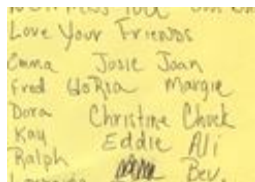 Miss You
Love Your Friends
Emma Josie Joan
Fred Gloria Margie
Dora Christine Chuck
Kay Eddie Ali
Ralph Bev.